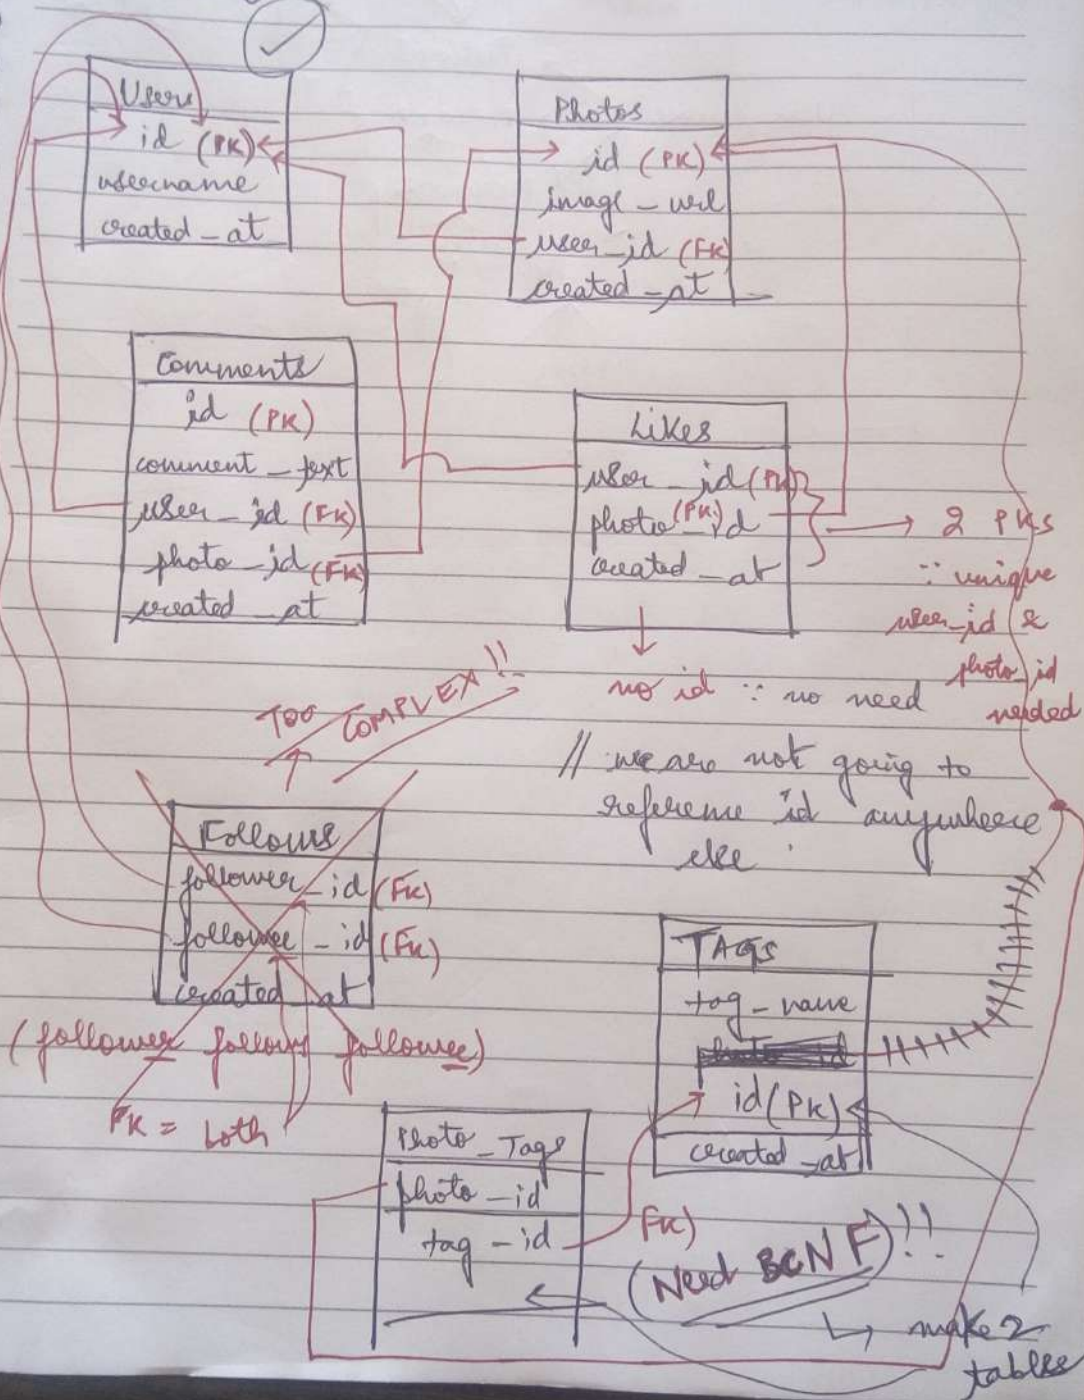 Users
id (PK)
username
created_at
Photos
id (PK)
image_url
user_id (FK)
created_at
Comments
id (PK)
comment_text
user_id (FK)
photo_id (FK)
created_at
Likes
user_id (PK)
photo_id (PK)
created_at
→ 2 PKs
∵ unique
user_id &
photo_id
needed
no id ∵ no need
// we are not going to
reference id anywhere
else.
TOO COMPLEX!!
Follows
follower_id (FK)
followee_id (FK)
created_at
(follower follows followee)
FK = both
TAGS
tag_name
id (PK)
created_at
Photo_Tags
photo_id
tag_id
FK)
(Need BCNF)!!
↳ make 2
tables